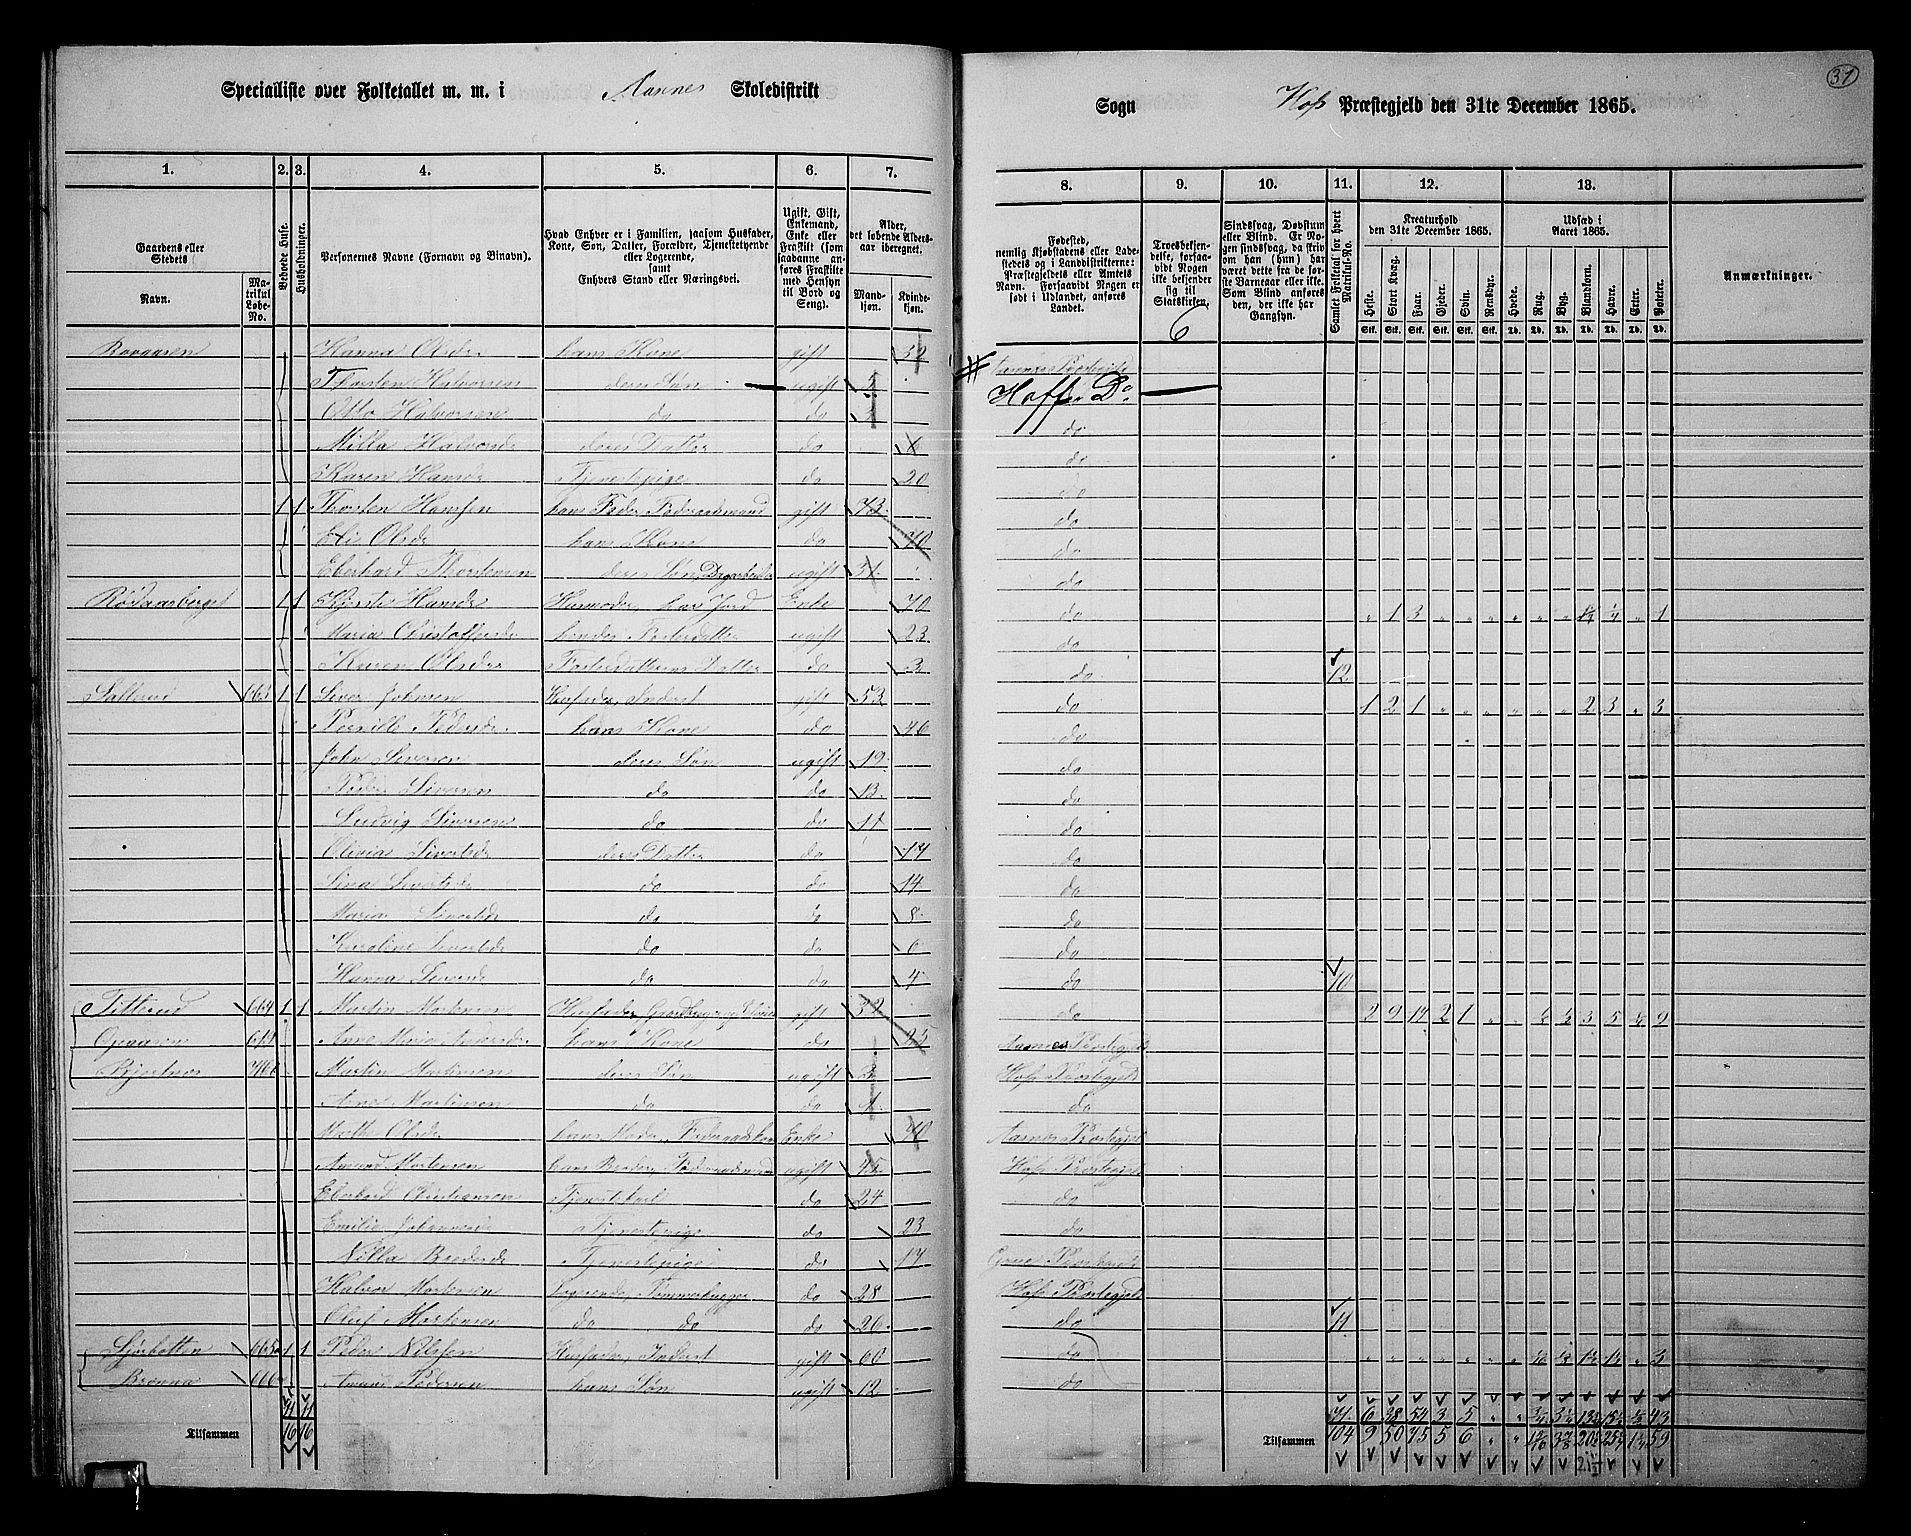 Specialliste over Folketallet m. m. i Aasnes Skoledistrikt
Sogn Hof Præstegjeld den 31te December 1865.
37
1. 2. 3. 4. 5. 6. 7.
8. 9. 10. 11. 12. 13.
Gaardens eller Stedets
Navn.
Matrikul Løbe-No.
Beboede Huse.
Husholdninger.
Personernes Navne (Fornavn og Binavn).
Hvad Enhver er i Familien, saasom Husfader, Kone, Søn, Datter, Forældre, Tjenestetyende eller Logerende, samt Enhvers Stand eller Næringsvei.
Ugift, Gift, Enkemand, Enke eller Fraskilt (som saadanne anføres Fraskilte med Hensyn til Bord og Seng).
Alder, det løbende Aldersaar iberegnet.
Mandkjøn.
Kvindekjøn.
Fødested, nemlig Kjøbstadens eller Ladestedets og i Landdistrikterne: Præstegjeldets eller Amtets Navn. Forsaavidt Nogen er født i Udlandet, anføres Landet.
Troesbekjendelse, forsaavidt Nogen ikke bekjender sig til Statskirken.
6
Sindssvag, Døvstum eller Blind. Er Nogen sindssvag, da skrives om han (hun) har været dette fra de første Barneaar eller ikke. Som Blind anføres den, der ikke har Gangsyn.
Samlet Folketal for hvert Matrikul-No.
Kreaturhold den 31te December 1865.
Heste. Stort Kvæg. Faar. Gjeder. Svin. Rensdyr.
Udsæd i Aaret 1865.
Hvede. Rug. Byg. Blandkorn. Havre. Erter. Poteter.
Anmærkninger.
Hanna Olsdr hans Kone gift 32 Aasnes Præstegjeld
Thorsten Halvorsen deres Søn ugift 5 Hoff Do
Otto Halvorsen do do 3 do
Milla Halvorsdr deres Datter do do
Karen Hansdr Tjenestepige do 20 do
1 1 Thorsten Hansen hans Fader, Føderaadsmand gift 73 do
Eli Olsdr hans Kone do 70 do
Eberhard Thorstensen deres Søn, Dagarbeider ugift 31 do
Rödaasberget 1 1 Kjersti Hansdr Husmoder, har Jord Enke 70 do " 1 3 " " " " " " 1½ ¼ " 1
Maria Christoffersdr hendes Fosterdatter ugift 23 do
Karen Olsdr Fosterdatterens Datter do 3 do 12
Sæterud 663 1 1 Siver Johnsen Husfader, Inderst gift 53 do 1 2 1 " " " " " " 2 3 " 3
Pernille Pedersdr hans Kone do 46 do
John Siversen deres Søn ugift 19 do
Peder Siversen do do 13 do
Ludvig Siversen do do 11 do
Olivia Siversdr deres Datter do 17 do
Lina Siversdr do do 14 do
Maria Siversdr do do 8 do
Karoline Siversdr do do 6 do
Hanna Siversdr do do 4 do 10
Titterud 664 1 1 Martin Mortensen gift 32 do 2 9 17 2 1 " " 3 5 ½ 9
Anne Maria hans Kone do 25 Aasnes Præstegjeld
Bjertnæs Martin Martinsen deres Søn ugift 3 Hof Præstegjeld
Arne Martinsen do do 1 do
Marthe Olsdr hans Moder, Føderaadskone Enke 70 Aasnes Præstegjeld
Amund Mortensen hans Broder, Føderaadsmand ugift 45 Hof Præstegjeld
Eberhard Christiansen Tjenestekarl do 24 do
Emilie Johannesdr Tjenestepige do 23 do
Tjenestepige do 17 Grue Præstegjeld
Halvor Mortensen Logerende, Tømmerhugger do 28 Hof Præstegjeld
Oluf Mortensen do do do 26 do 11
Sjurbotten 665 1 1 Peder Nilssen Husfader, Inderst gift 60 do
Amund Pedersen hans Søn ugift 12 do
71 6 38 54 3 5 " " 43
Tilsammen 16 16
Tilsammen 104 9 50 75 5 6 " " 59
21½